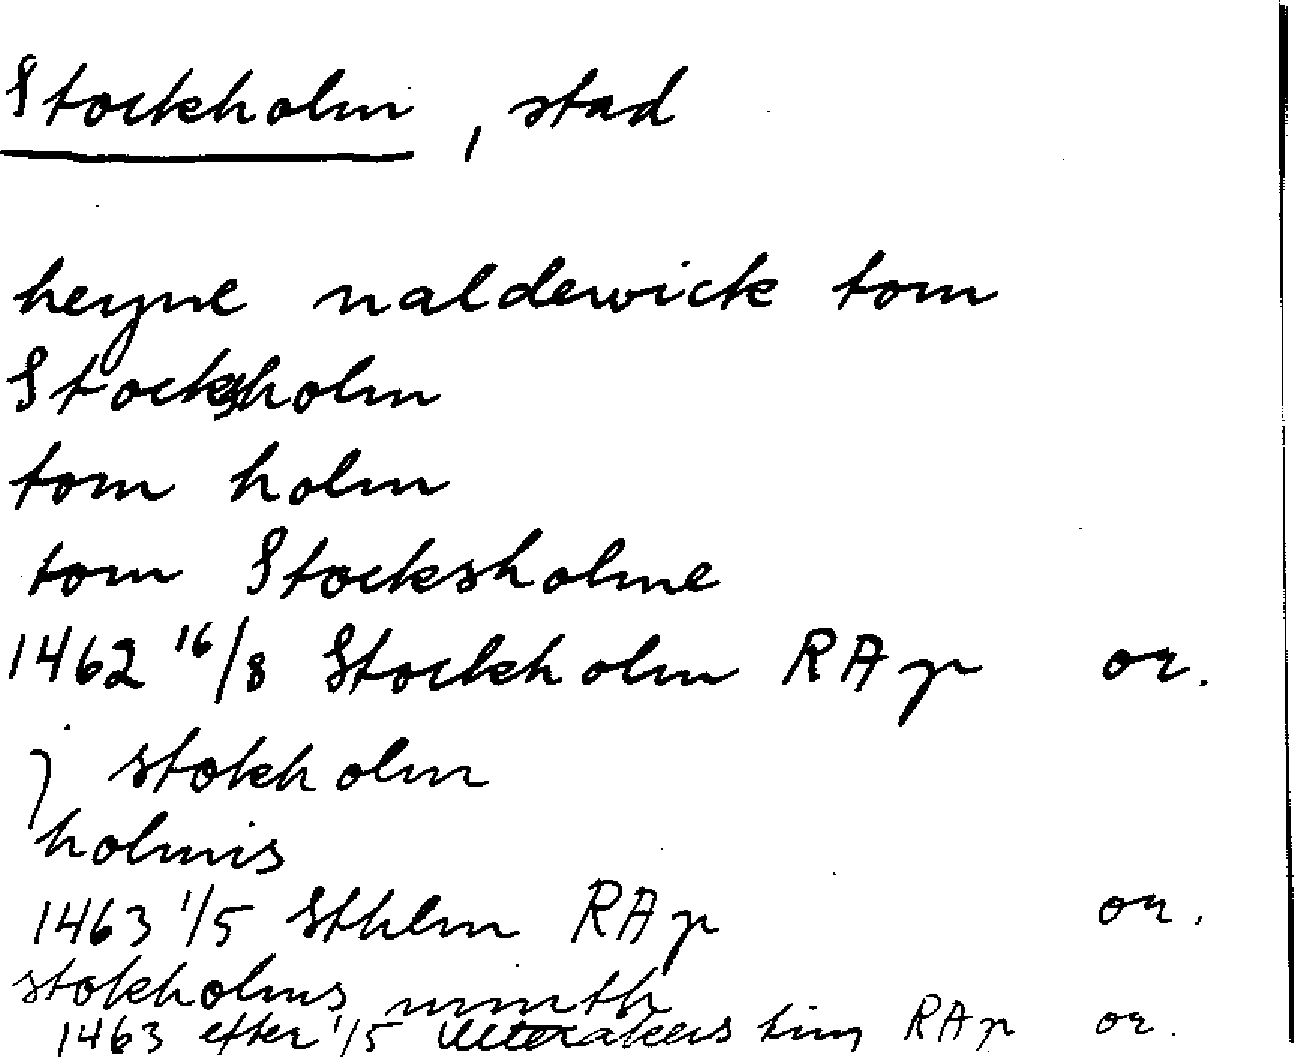 Stockholm, stad
heyne naldewick tom
Stocksholm
tom holm
tom Stocksholme
1462 16/8 Stockholm RAp or.
j stokholm
holmis
1463 1/5 Sthlm RAp or.
stokholms
1463 efter 1/5 ting RAp or.